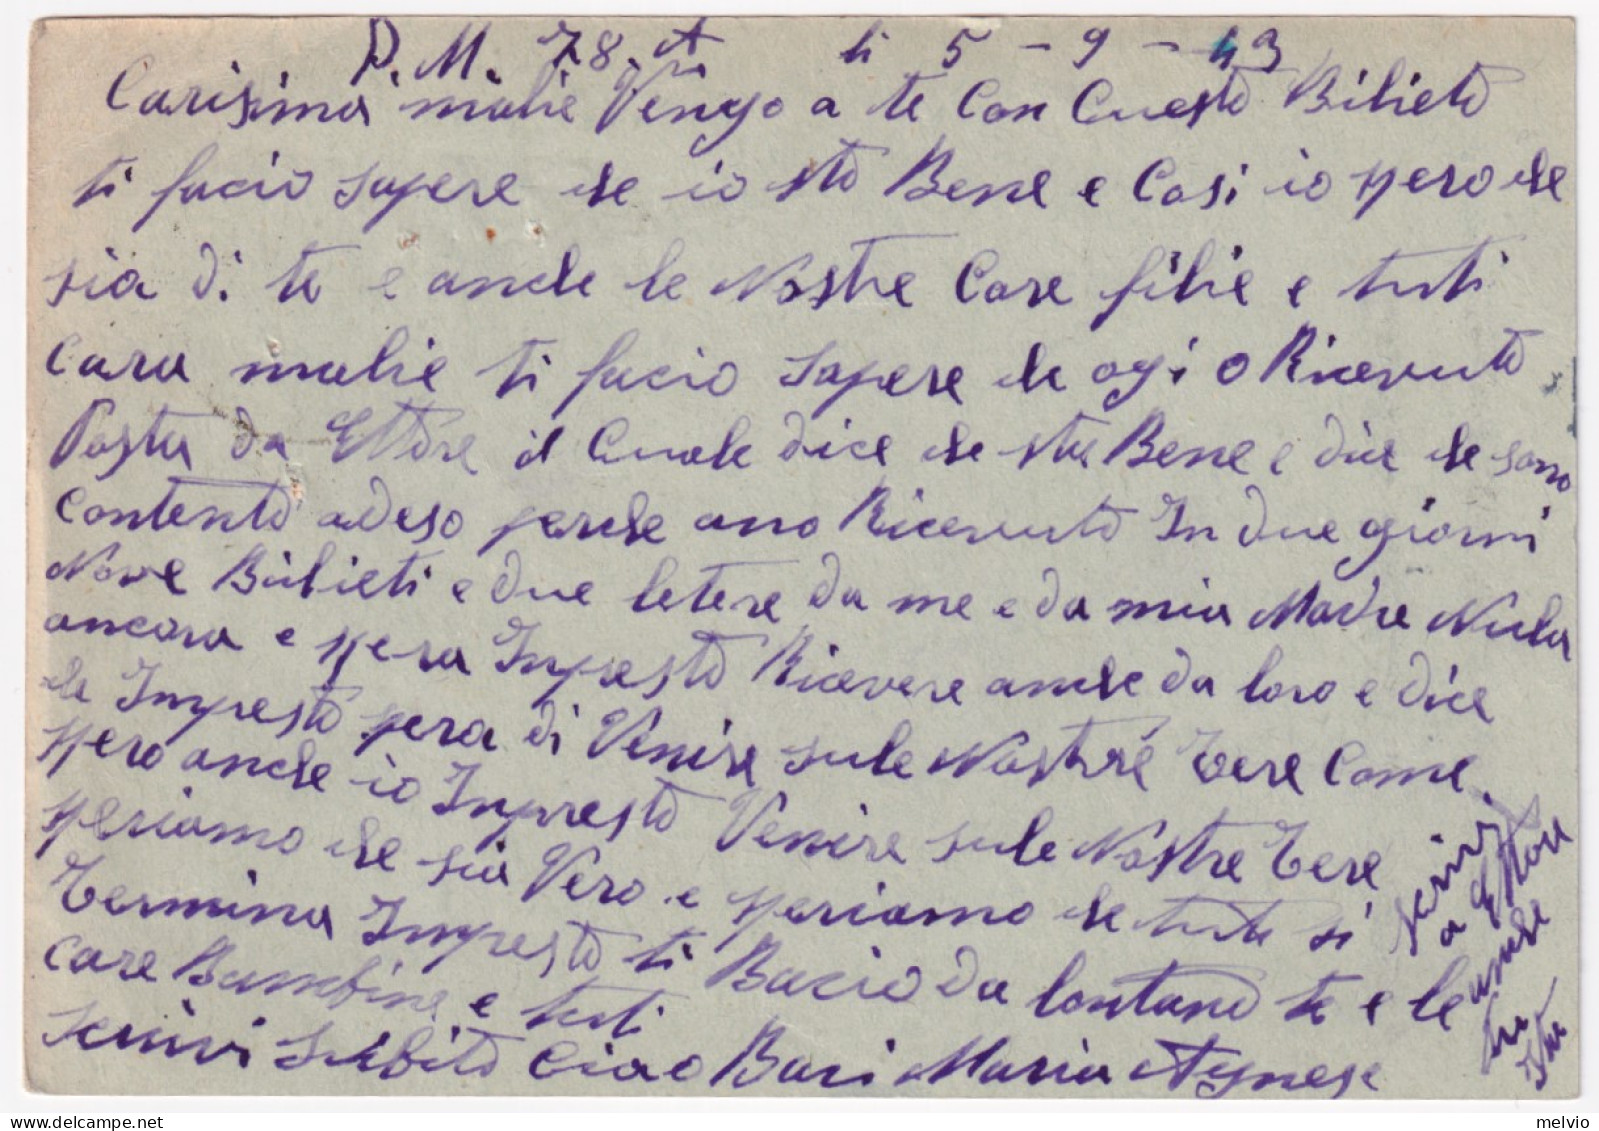 P.M. 78. A li 5 - 9 - 43
Carisima molie Vengo a te Con Cuesto Bilieto
ti facio sapere che io sto Bene e Cosi io spero che
sia di te e anche le Nostre Care filie e tuti
Cara molie ti facio sapere che ogi o Ricevuto
Posta da Ettore il Cuale dice che sta Bene e dice che sono
Contento adeso perche ano Ricevuto In due giorni
Nove Bilieti e due letere da me e da mia Madre Nula
ancora e spera Inpresto Ricevere anche da loro e dice
che Inpresto spera di Venire sule Nostre Tere Come
spero anche io Inpresto Venire sule Nostre Tere
speriamo che sia Vero e speriamo che tuto si
Termina Inpresto ti Bacio da lontano te e le
care Bambine e tuti
scrivi subito Ciao Baci Maria Agnese
scrivi
a Ettore
anche
tu